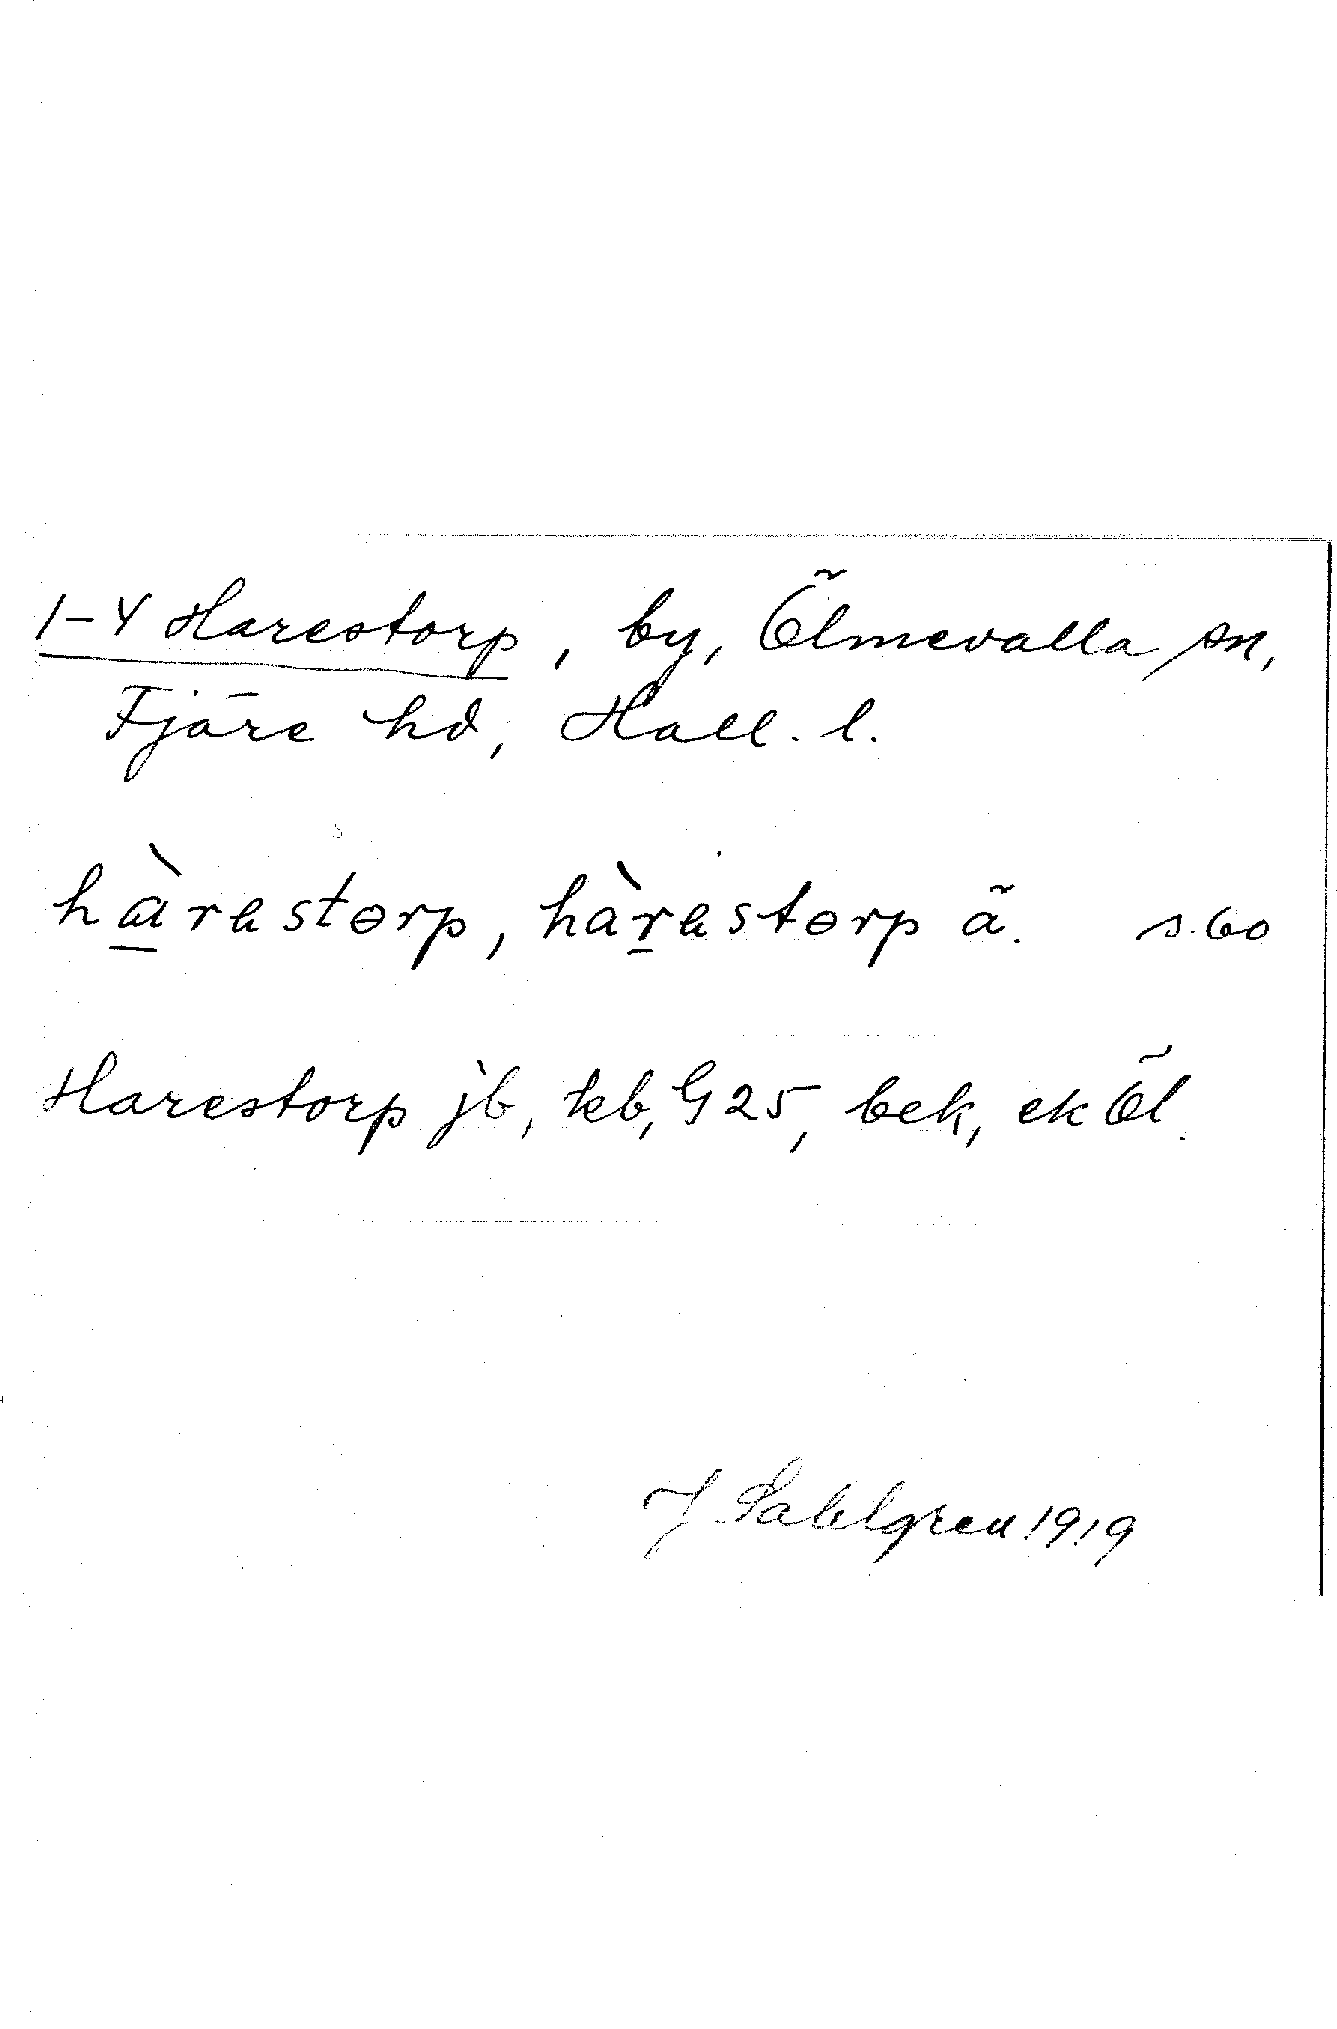 1-4 Harestorp, by, Ölmevalla sn,
Fjäre hd, Hall. l.
hàrastɵrp, hàrastɵrp ã. s. 60
Harestorp jb, kb, G 25, bek, ek Öl.
J. Sahlgren 1919